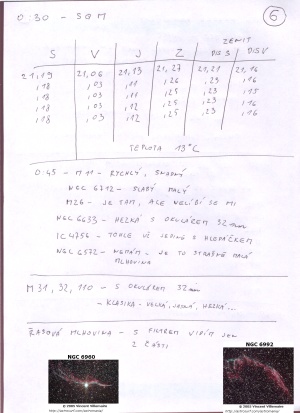 0:30 - SQM
6
ZENIT
S V J Z DIS S DIS V
21,19 21,06 21,13 21,27 21,21 21,16
,18 ,03 ,11 ,26 ,23 ,16
,18 ,03 ,11 ,25 ,23 ,15
,18 ,03 ,12 ,25 ,23 ,16
,18 ,03 ,12 ,25 ,23 ,16
TEPLOTA 13°C
0:45 - M11 - RYCHLÝ, SNADNÝ
NGC 6712 - SLABÝ MALÝ
M26 - JE TAM, ALE NELÍBÍ SE MI
NGC 6633 - HEZKÁ S OKULÁREM 32mm
IC 4756 - TOHLE UŽ JEDINĚ S HLEDÁČKEM
NGC 6572 - NEMÁM - JE TO STRAŠNĚ MALÁ
MLHOVINA
M31, 32, 110 - S OKULÁREM 32mm
- KLASIKA - VELKÁ, JASNÁ, HEZKÁ...
ŘASOVÁ MLHOVINA - S FILTREM VIDÍM JEN
2 ČÁSTI
NGC 6960
NGC 6992
© 2005 Vincent Villenaire
© 2003 Vincent Villenaire